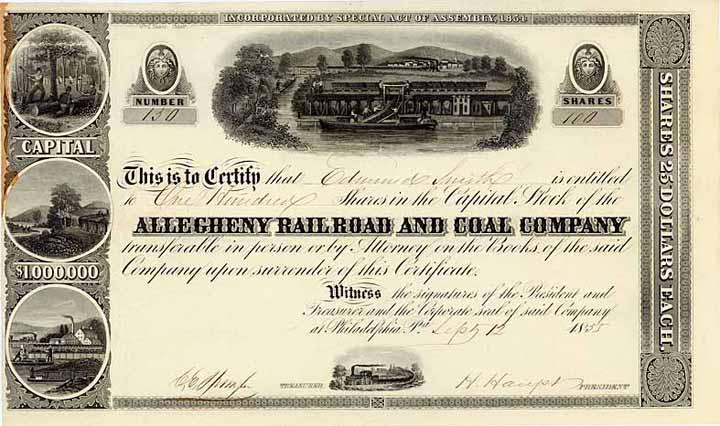 INCORPORATED BY SPECIAL ACT OF ASSEMBLY, 1854.
NUMBER
130
SHARES
100
CAPITAL
$1,000,000
SHARES 25 DOLLARS EACH.
This is to Certify that Edmund Smith is entitled
to One Hundred Shares in the Capital Stock of the
ALLEGHENY RAILROAD AND COAL COMPANY
transferable in person or by Attorney on the Books of the said
Company upon surrender of this Certificate.
Witness the signatures of the President and
Treasurer and the Corporate seal of said Company
at Philadelphia Pa. Sept 12 1855
TREASURER
H. Haupt PRESIDENT